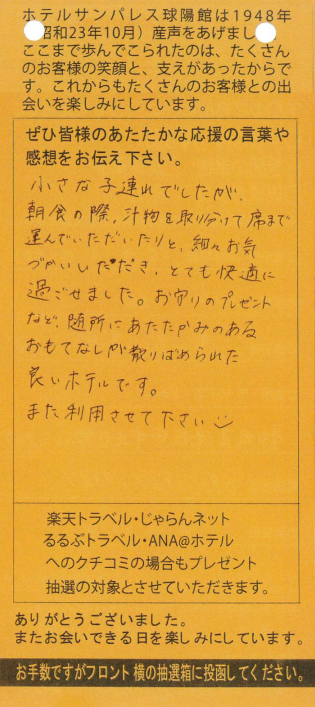 ホテルサンパレス球陽館は1948年
昭和23年10月）産声をあげまし
ここまで歩んでこられたのは、たくさん
のお客様の笑顔と、支えがあったからで
す。これからもたくさんのお客様との出
会いを楽しみにしています。
ぜひ皆様のあたたかな応援の言葉や
感想をお伝え下さい。
小さな子連れでしたが、
朝食の際、汁物を取り分けて席まで
運んでいただいたりと、細々お気
づかいいただき、とても快適に
過ごせました。お守りのプレゼント
など、随所にあたたかみのある
おもてなしが散りばめられた
良いホテルです。
また利用させて下さい
楽天トラベル・じゃらんネット
るるぶトラベル・ANA@ホテル
へのクチコミの場合もプレゼント
抽選の対象とさせていただきます。
ありがとうございました。
またお会いできる日を楽しみにしています。
お手数ですがフロント横の抽選箱に投函してください。